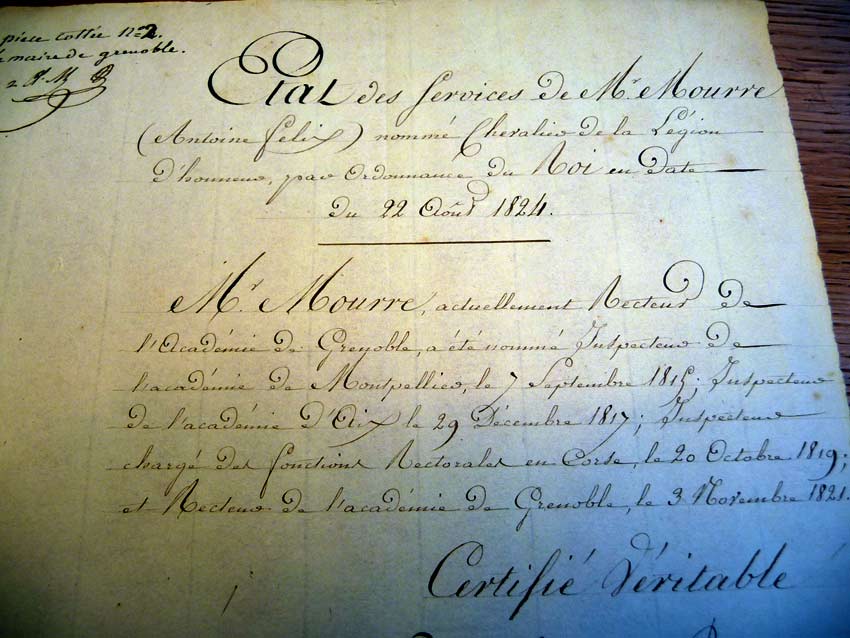 pièce cottée n.º 2.
maire de grenoble.
Etat des Services de Mr. Mourre
(Antoine Felix) nommé Chevalier de la Légion
d'honneur, par Ordonnance du Roi en Date
du 22 Août 1824.
Mr. Mourre, actuellement Recteur de
l'Académie de Grenoble, a été nommé Inspecteur de
l'académie de Montpellier, le 7 Septembre 1815; Inspecteur
de l'académie d'Aix le 29 Décembre 1817; Inspecteur
chargé des fonctions Rectorales en Corse, le 20 Octobre 1819;
et Recteur de l'académie de Grenoble, le 3 Novembre 1821.
Certifié Véritable